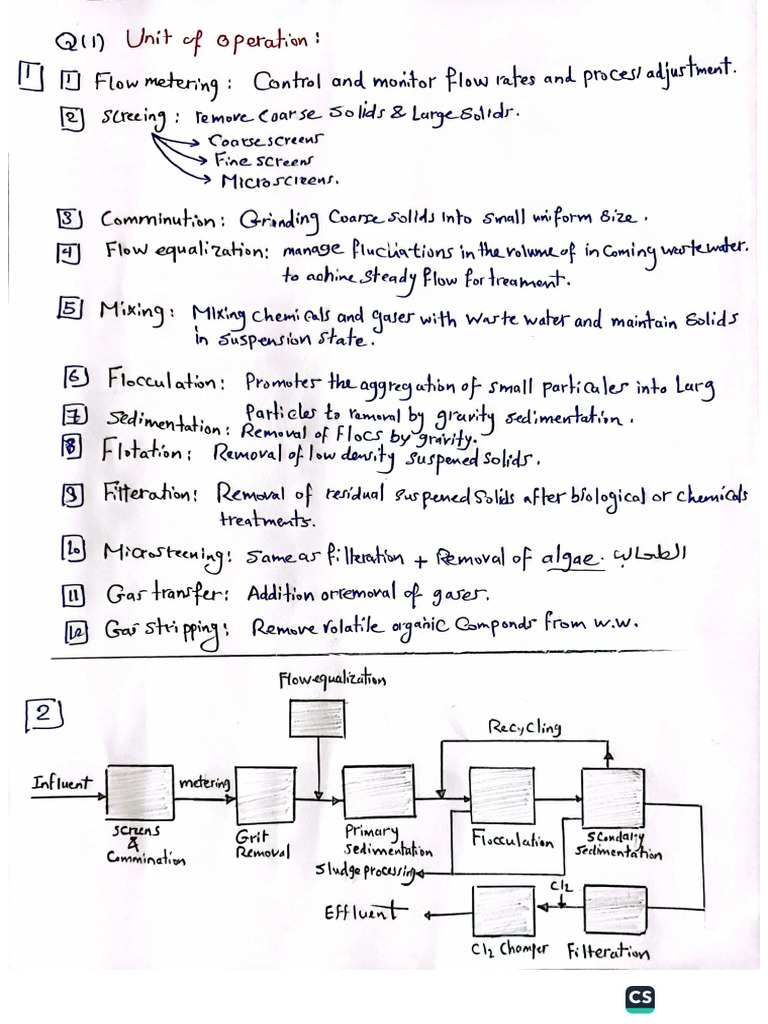 Q(1) Unit of operation:
1 1 Flow metering: Control and monitor flow rates and process/adjustment.
2 Screeing: remove coarse solids & Large solids.
Coarse screens
Fine screens
Microscreens.
3 Comminution: Grinding Coarse solids into small uniform size.
4 Flow equalization: manage fluctiations in the volume of incoming wastewater.
to achine steady flow for treament.
5 Mixing: Mixing chemicals and gases with waste water and maintain solids
in suspension state.
6 Flocculation: Promotes the aggregation of small particules into Larg
Particles to removal by gravity sedimentation.
7 Sedimentation: Removal of Flocs by gravity.
8 Flotation: Removal of low density suspened solids.
9 Filteration: Removal of residual suspened solids after biological or chemicals
treatments.
10 Microsteening: Same as filteration + Removal of algae. الطحالب
11 Gas transfer: Addition or removal of gases.
12 Gas stripping: Remove volatile organic Componds from w.w.
2
Flow equalization
Recycling
Influent
metering
screens
&
Commination
Grit
Removal
Primary
sedimentation
Flocculation
Scondary
sedimentation
Sludge processing
Cl2
Effluent
Cl2 Champer
Filteration
CS